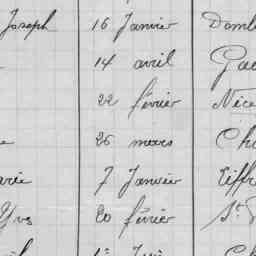 Joseph 16 Janvier Domb
14 avril Ga
22 février Nice
e 26 mars Ch
arie 7 Janvier Tiffr
Yvs 20 février St
1er Juin Ch